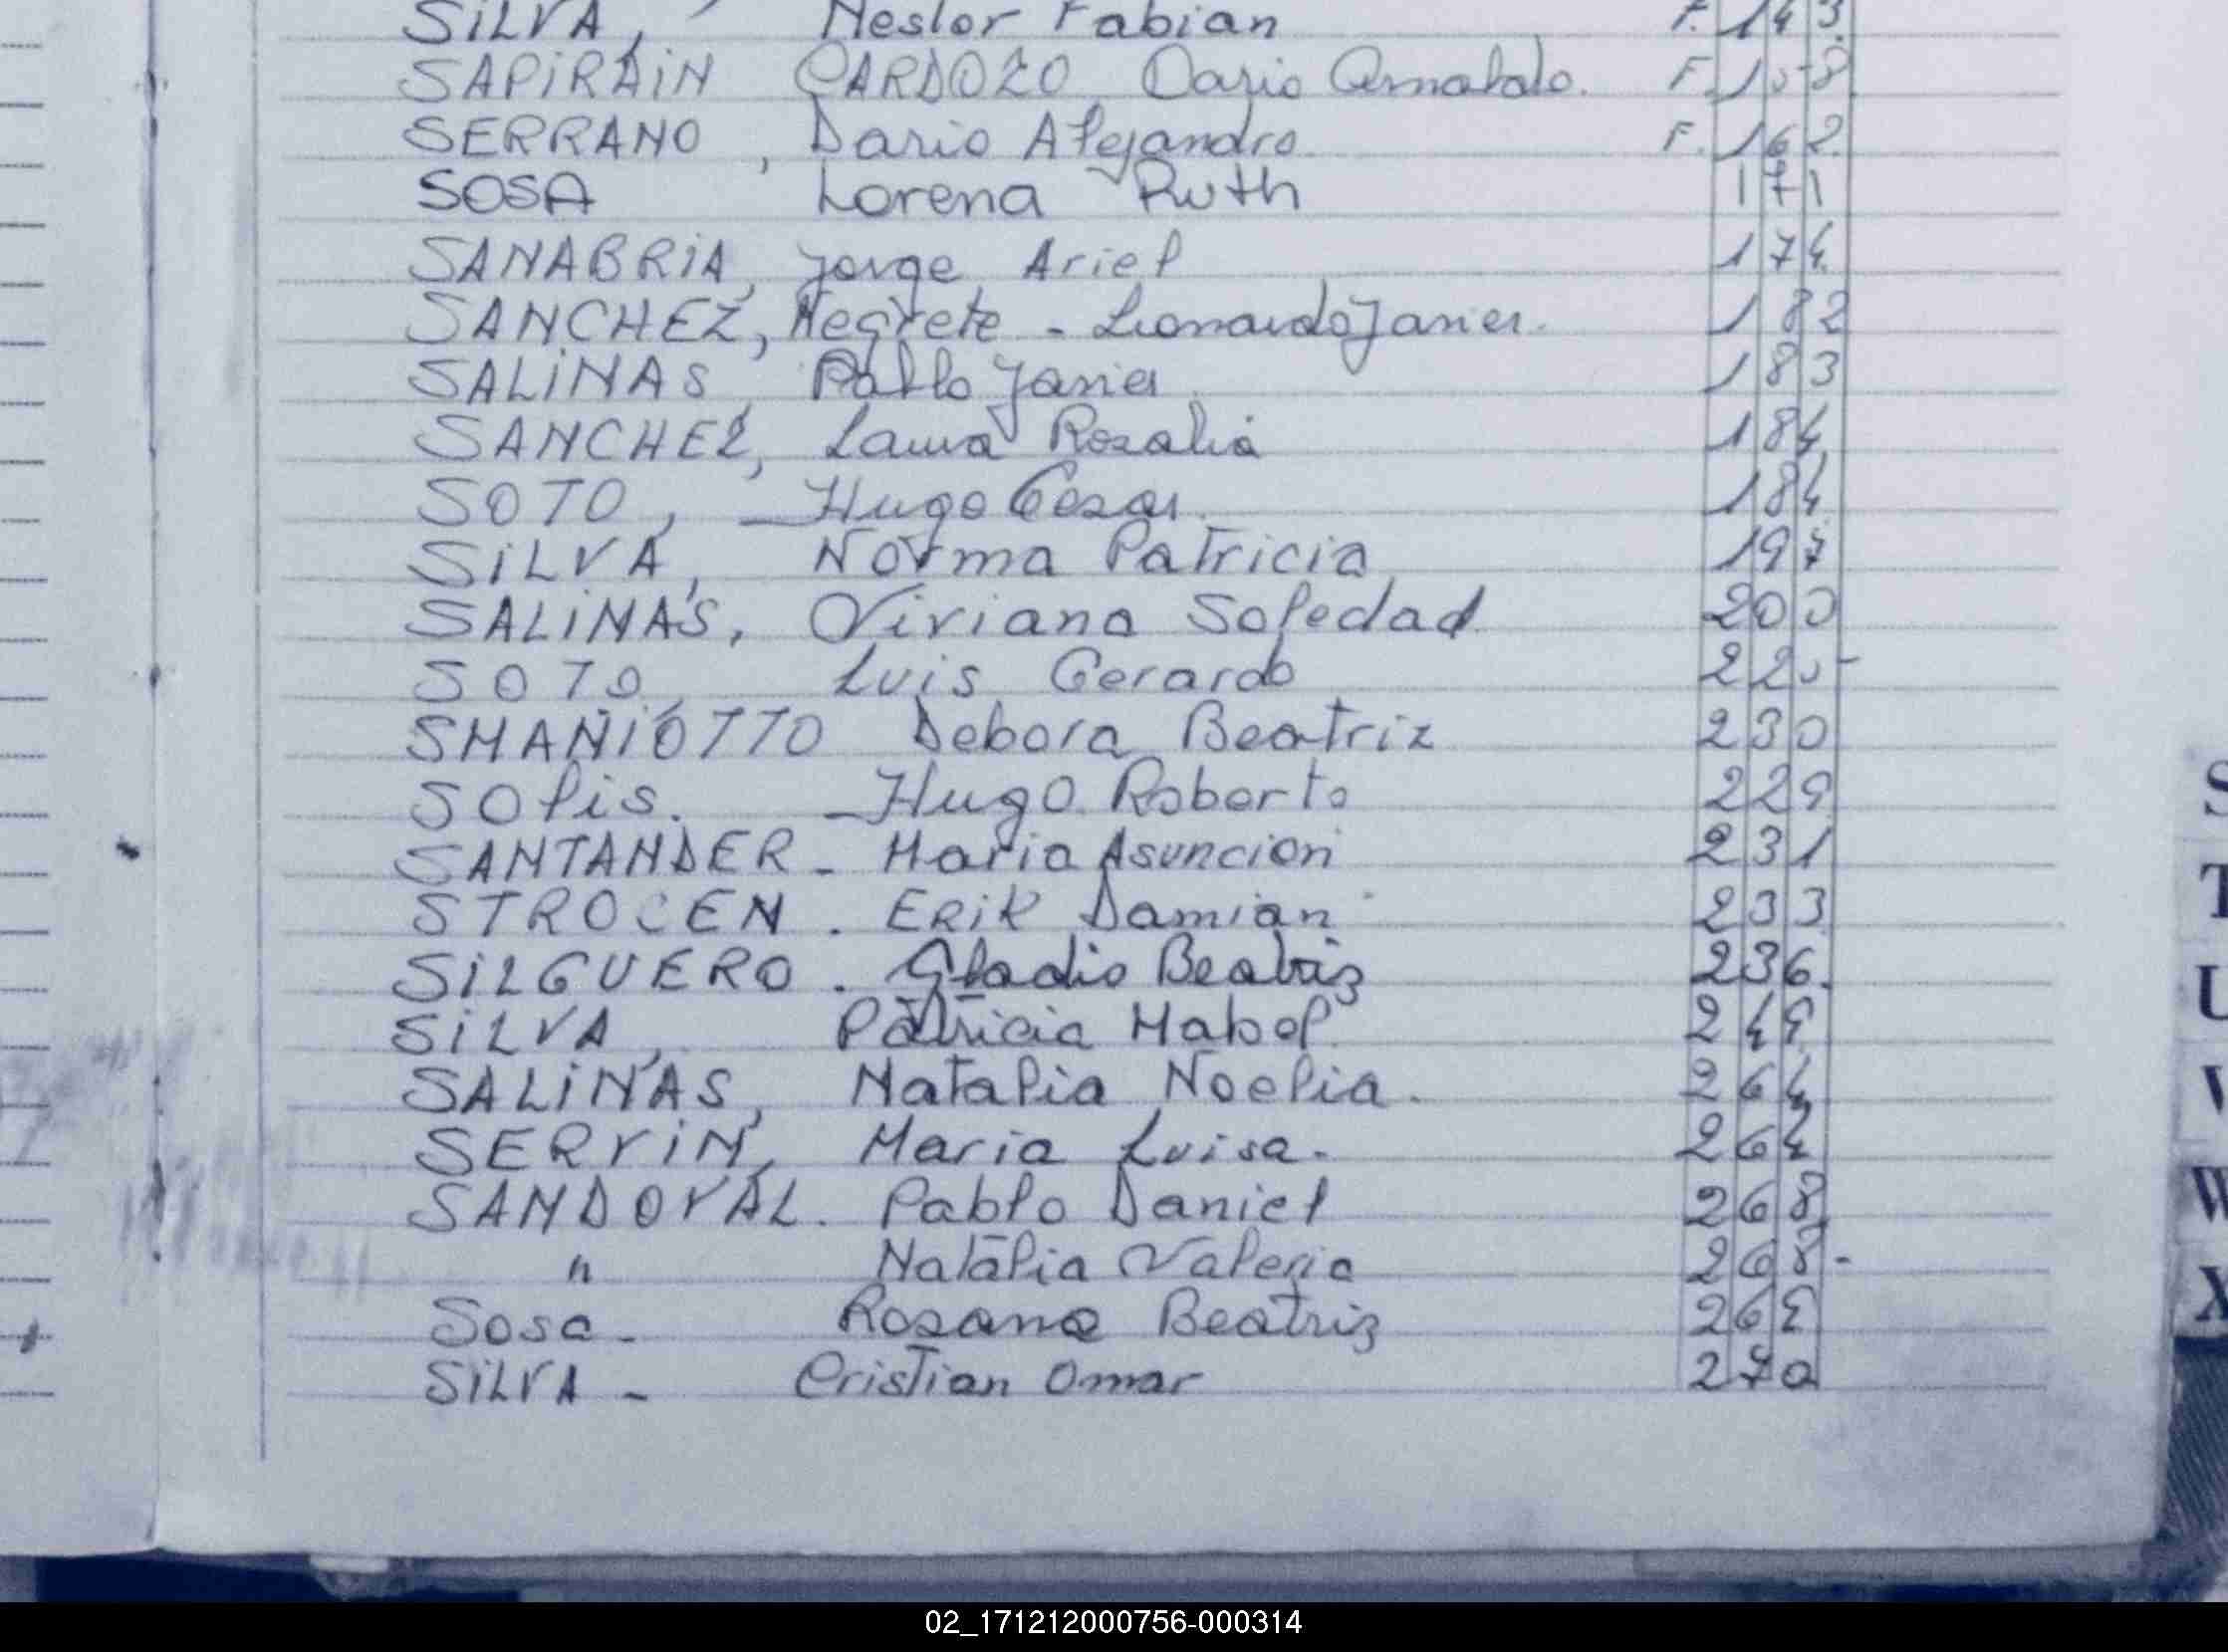 SiLVA, Nestor Fabian F. 143.
SAPiRAiN CARDOZO Dario Arnaldo. F. 158.
SERRANO, Dario Alejandro F. 162.
SOSA Lorena Ruth 171
SANABRiA, Jorge Ariel 174.
SANCHEZ, Negrete - Leonardo Javier. 182
SALiNAS, Pablo Javier 183
SANCHEZ, Laura Rosalia 184
SOTO, Hugo Cesar. 184
SiLVA, Norma Patricia 197
SALiNAS, Viviana Soledad 200
SOTO, Luis Gerardo 225
SMANiOTTO Debora Beatriz 230
SOlis. Hugo Roberto 229
SANTANDER - Maria Asuncion 231
STROCEN. ERiK Damian 233
SiLGUERO. Gladis Beatriz 236.
SiLVA, Patricia Mabel 249
SALiNAS, Natalia Noelia. 264
SERViN, Maria Luisa. 264
SANDOVAL. Pablo Daniel 268
" Natalia Valeria 268-
Sosa - Rosana Beatriz 269
SiLVA - Cristian Omar 270
S
T
U
V
W
X
02_171212000756-000314